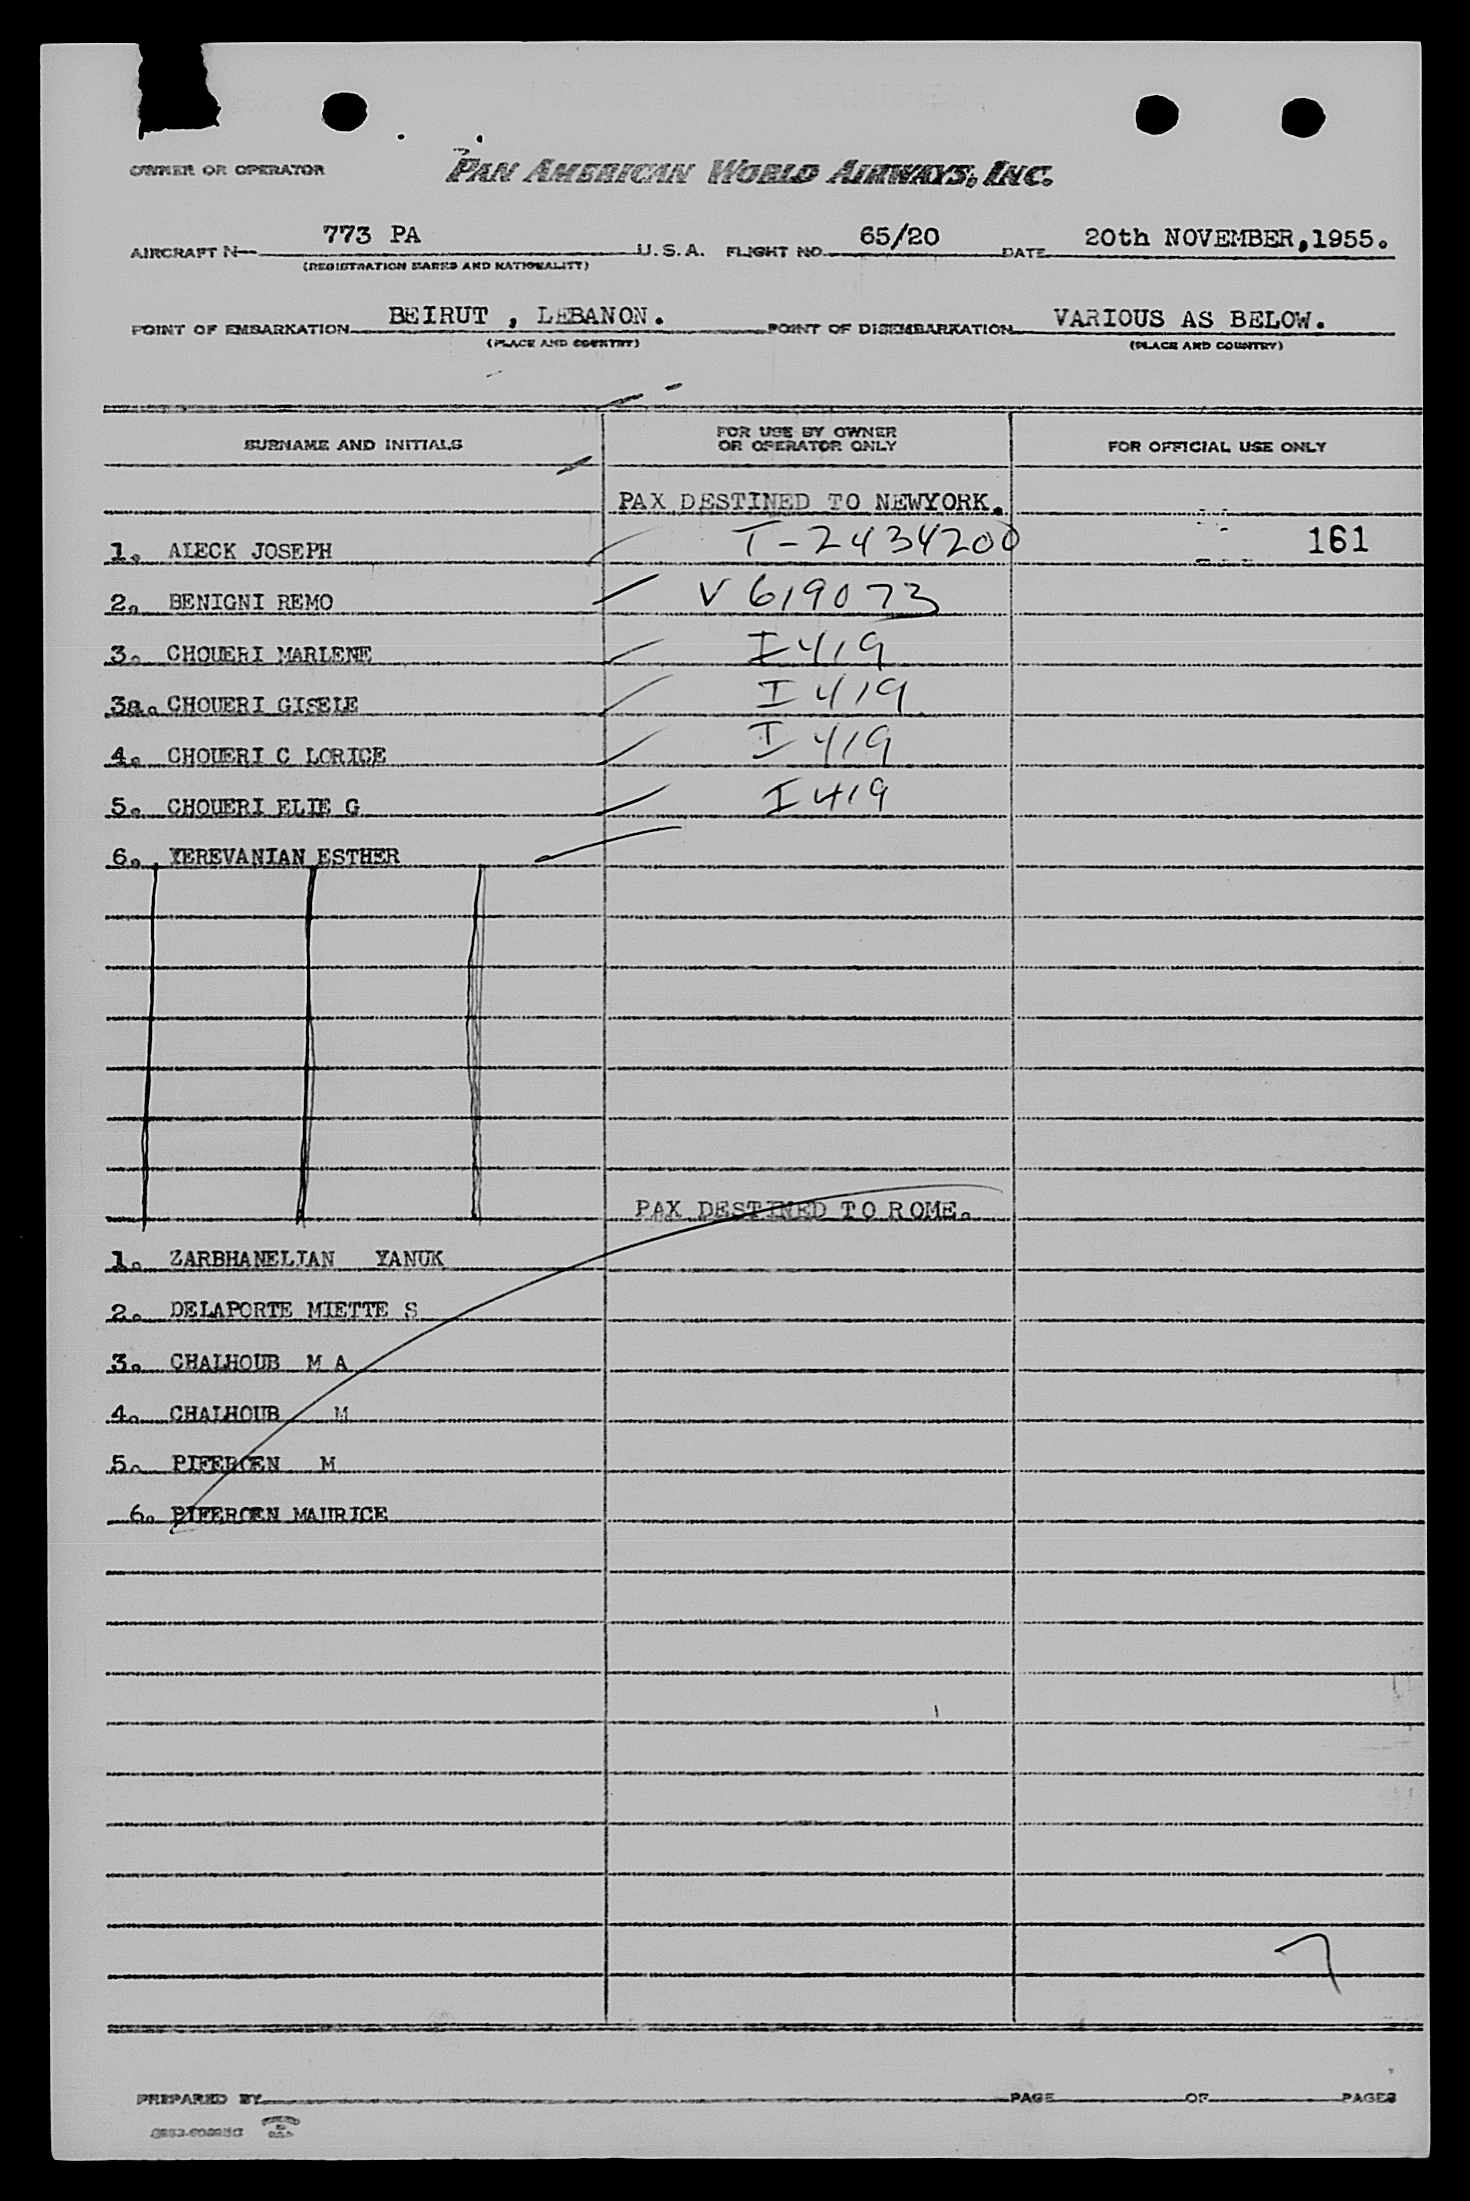 OWNER OR OPERATOR PAN AMERICAN WORLD AIRWAYS, INC.
AIRCRAFT N 773 PA U.S.A. FLIGHT NO. 65/20 DATE 20th NOVEMBER,1955.
(REGISTRATION MARKS AND NATIONALITY)
POINT OF EMBARKATION BEIRUT , LEBANON. POINT OF DISEMBARKATION VARIOUS AS BELOW.
(PLACE AND COUNTRY) (PLACE AND COUNTRY)
SURNAME AND INITIALS FOR USE BY OWNER OR OPERATOR ONLY FOR OFFICIAL USE ONLY
PAX DESTINED TO NEWYORK.
1. ALECK JOSEPH T-2434200 161
2. BENIGNI REMO V 619073
3. CHOUERI MARLENE I 419
3a. CHOUERI GISELE I 419
4. CHOUERI C LORICE I 419
5. CHOUERI ELIE G I 419
6. YEREVANIAN ESTHER
PAX DESTINED TO ROME.
1. ZARBHANELIAN YANUK
2. DELAPORTE MIETTE S
3. CHALHOUB M A
4. CHALHOUB M
5. PIFEROEN M
6. PIFEROEN MAURICE
7
PREPARED BY PAGE OF PAGES